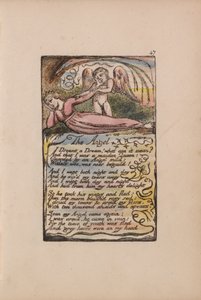 47
The Angel
I Dreamt a Dream! what can it mean?
And that I was a maiden Queen:
Guarded by an Angel mild:
Witless woe, was neer beguil'd!
And I wept both night and day
And he wip'd my tears away
And I wept both day and night
And hid from him my hearts delight
So he took his wings and fled:
Then the morn blush'd rosy red:
I dried my tears & armd my fears,
With ten thousand shields and spears.
Soon my Angel came again:
I was arm'd, he came in vain:
For the time of youth was fled
And grey hairs were on my head